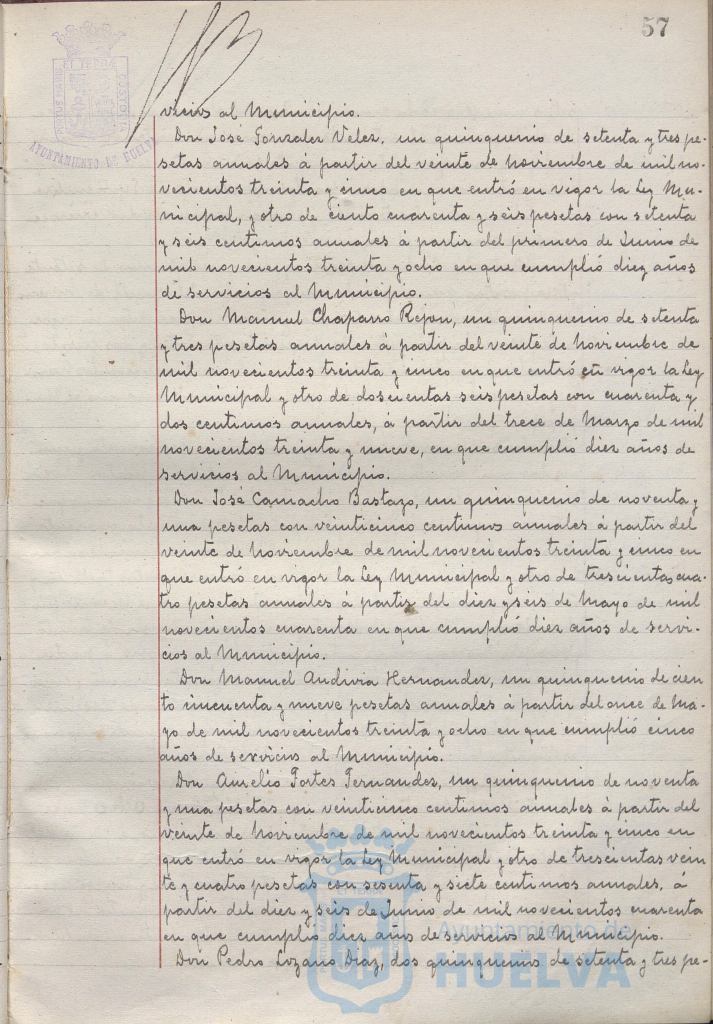 57
vicios al Municipio.
Don José Gonzalez Velez, un quinquenio de setenta y tres pe-
setas anuales á partir del veinte de Noviembre de mil no-
vecientos treinta y cinco en que entró en vigor la Ley Mu-
nicipal, y otro de ciento cuarenta y seis pesetas con setenta
y seis centimos anuales á partir del primero de Junio de
mil novecientos treinta y ocho en que cumplió diez años
de servicios al Municipio.
Don Manuel Chaparro Rejon, un quinquenio de setenta
y tres pesetas anuales á partir del veinte de Noviembre de
mil novecientos treinta y cinco en que entró en vigor la Ley
Municipal y otro de doscientas seis pesetas con cuarenta y
dos centimos anuales, á partir del trece de Marzo de mil
novecientos treinta y nueve, en que cumplió diez años de
servicios al Municipio.
Don José Camacho Bastazo, un quinquenio de noventa y
una pesetas con veinticinco centimos anuales á partir del
veinte de Noviembre de mil novecientos treinta y cinco en
que entró en vigor la Ley Municipal y otro de trescientas cua-
tro pesetas anuales á partir del diez y seis de Mayo de mil
novecientos cuarenta en que cumplió diez años de servi-
cios al Municipio.
Don Manuel Andivia Hernandez, un quinquenio de cien-
to cincuenta y nueve pesetas anuales á partir del once de Ma-
yo de mil novecientos treinta y ocho en que cumplió cinco
años de servicios al Municipio.
Don Aurelio Fortes Fernandez, un quinquenio de noventa
y una pesetas con veinticinco centimos anuales á partir del
veinte de Noviembre de mil novecientos treinta y cinco en
que entró en vigor la Ley Municipal y otro de trescientas vein
te y cuatro pesetas con sesenta y siete centimos anuales, á
partir del diez y seis de Junio de mil novecientos cuarenta
en que cumplio diez años de servicios al Municipio.
Don Pedro Lozano Diaz, dos quinquenios de setenta y tres pe-
AYUNTAMIENTO DE HUELVA
Ayuntamiento de
HUELVA